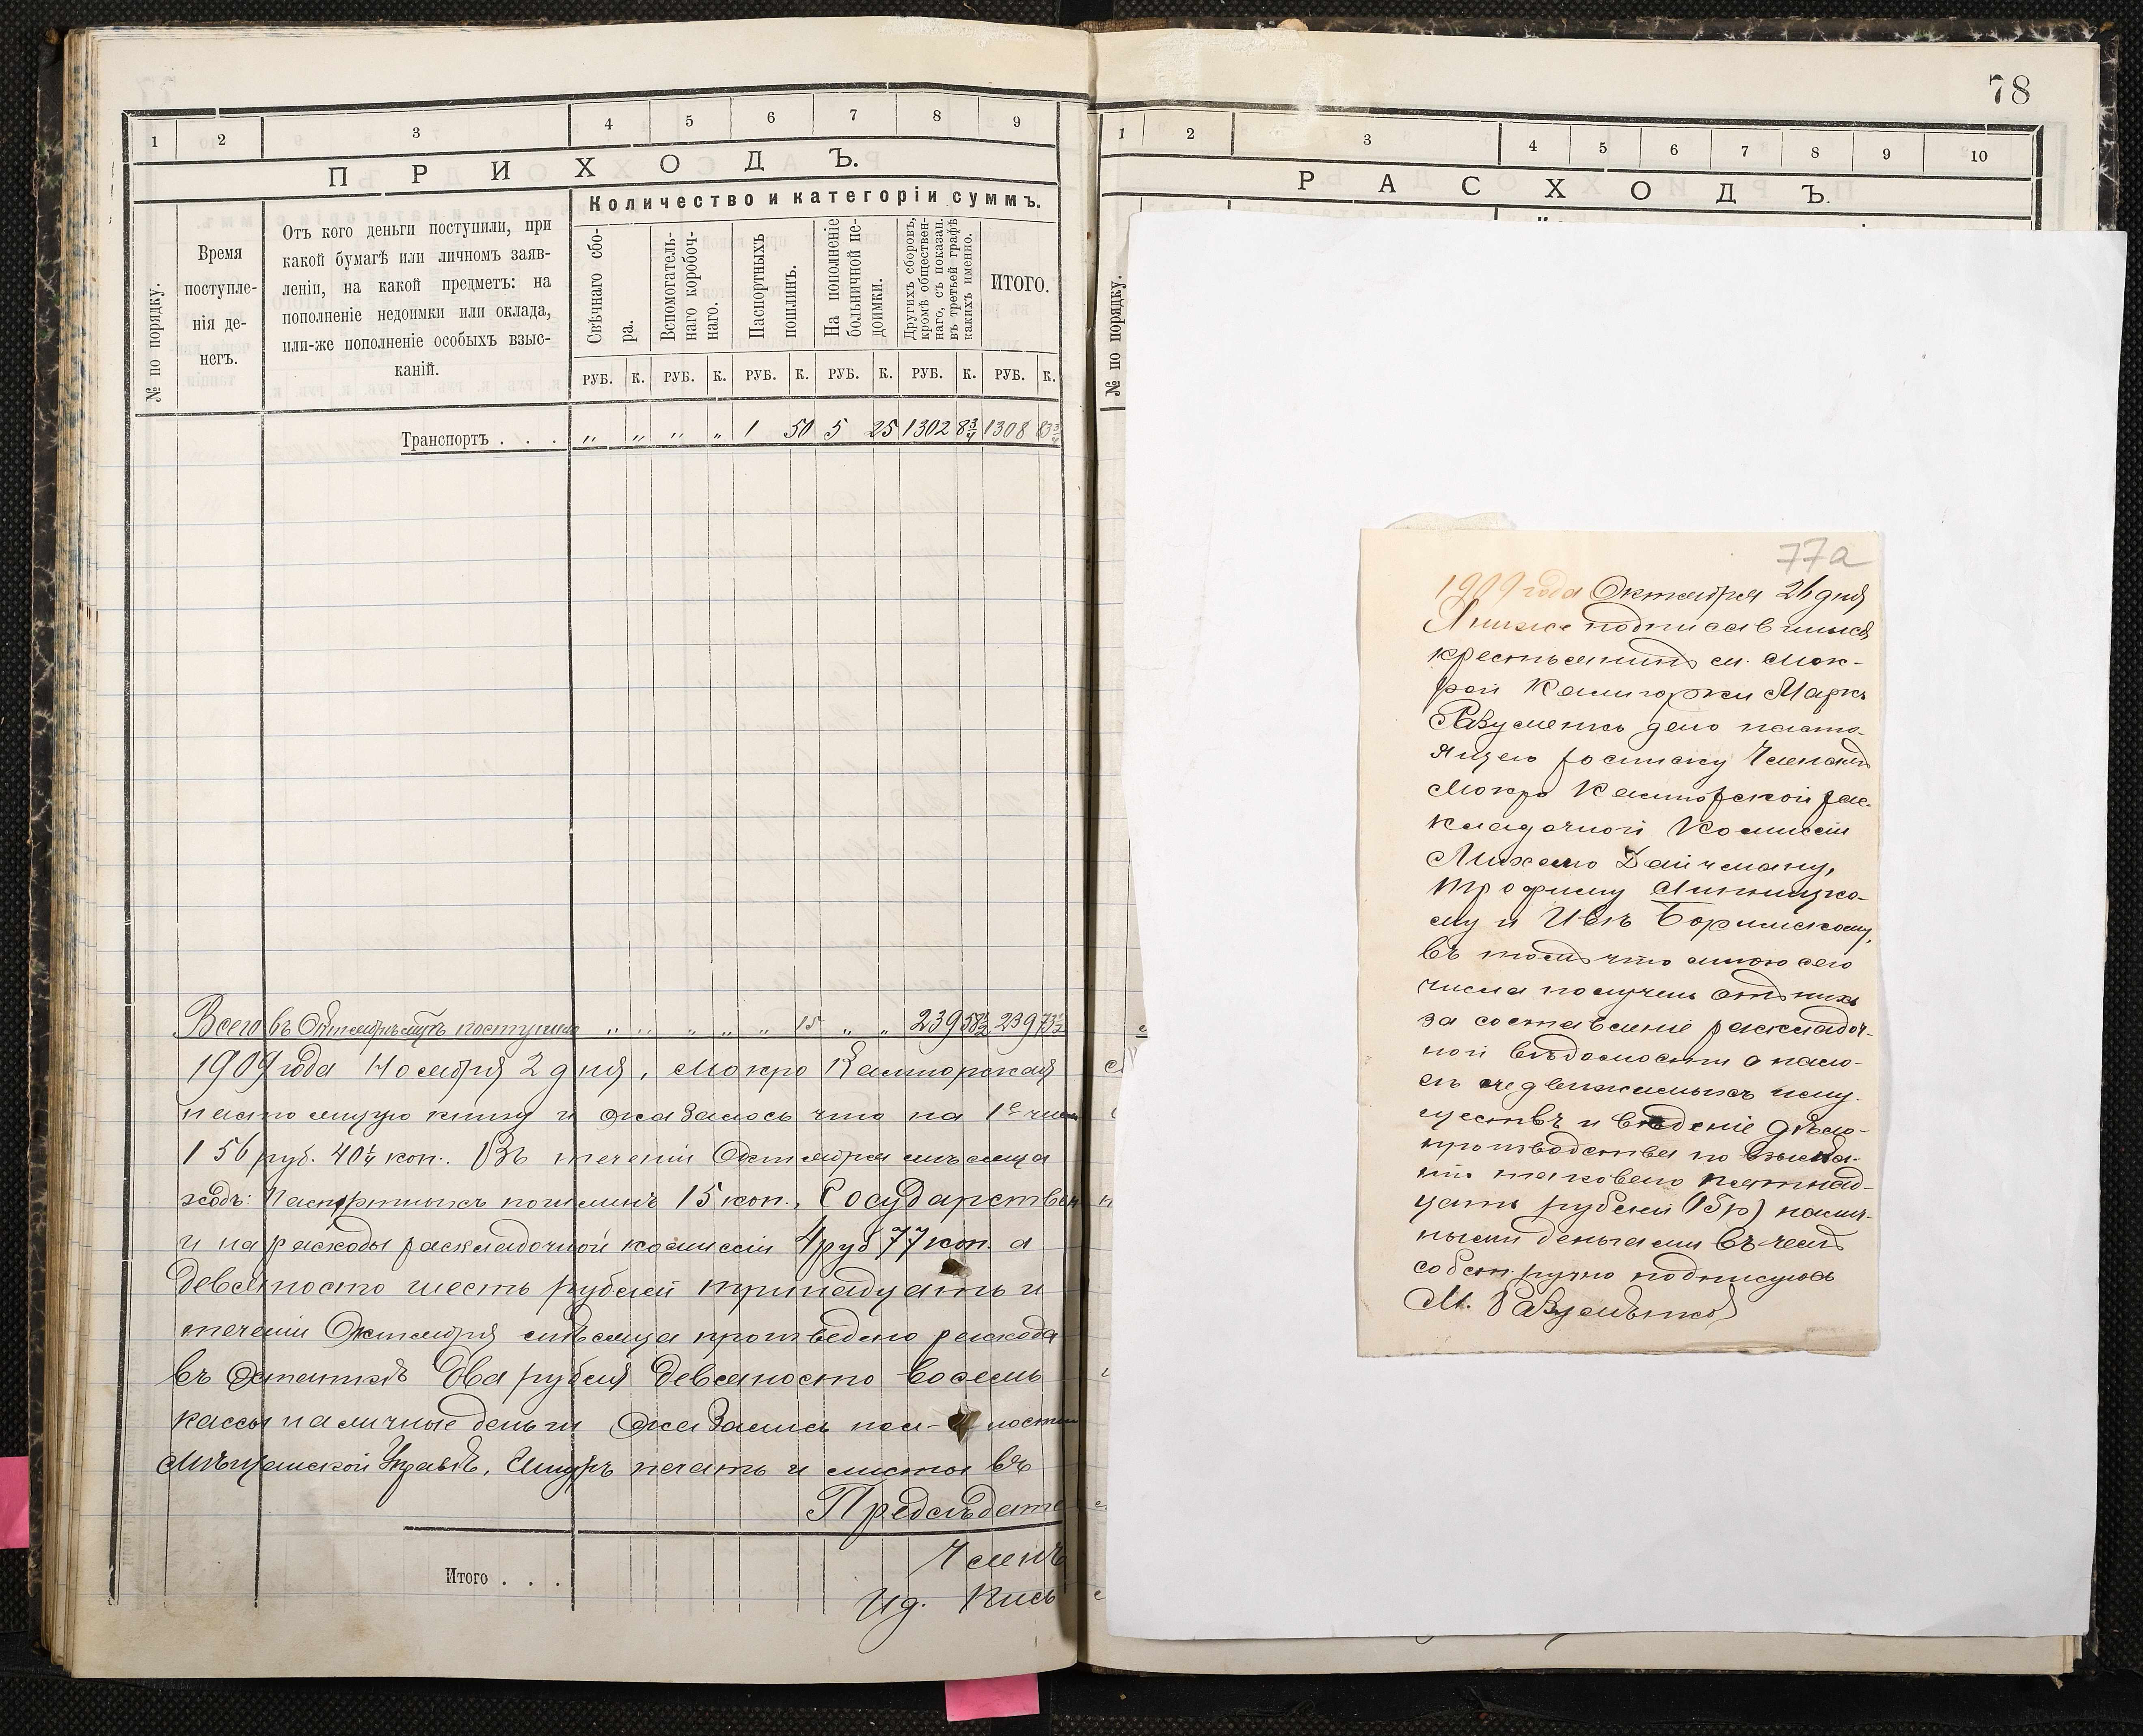 1 2 3 4 5 6 7 8 9
ПРИХОДЪ.
№ по порядку.
Время
поступле-
нія де-
негъ.
Отъ кого деньги поступили, при
какой бумагѣ или личномъ заяв-
леніи, на какой предметъ: на
пополненіе недоимки или оклада,
или-же пополненіе особыхъ взыс-
каній.
Количество и категоріи суммъ.
Свѣчнаго сбо-
ра.
Вспомогатель-
наго коробоч-
наго.
Паспортныхъ
пошлинъ.
На пополненіе
больничной не-
доимки.
Другихъ сборовъ,
кромѣ обществен-
наго, съ показан.
въ третьей графѣ
какихъ именно.
ИТОГО.
РУБ. К. РУБ. К. РУБ. К. РУБ. К. РУБ. К. РУБ. К.
Транспортъ . . . „ „ „ „ 1 50 5 25 1302 8¾ 1308 83¾
Всего въ Октябрѣ мѣс поступило „ „ „ „ „ 15 „ „ 239 58½ 239 73½
1909 года Ноября 2 дня, Мокро Калигорская
настоящую книгу и оказалось что на 1е числ
156 руб. 40¼ коп. Въ теченіи Октября мѣсяца
ходъ: Паспортныхъ пошлинъ 15 коп., Государствен
и на расходы раскладочной коммиссіи 4 руб 77 коп. а
девяносто шесть рублей тринадцать и
теченіи Октября мѣсяца произведено расхода
въ остаткѣ два рубля девяносто восемь
кассы наличные деньги оказались пол- ностью
Мѣщанской Управѣ. Шнуръ печать и листы въ
Предсѣдате
Членъ
Ид. Пись
Итого . . .
78
1 2 3 4 5 6 7 8 9 10
РАСХОДЪ.
№ по порядку.
77а
1909 года Октября 26 дня
Я ниже подписавшійся
крестьянинъ м. Мок-
рой Калигорки Маркъ
Разуменко даю насто-
ящею росписку Членамъ
Мокро Калигорской рас-
кладочной Комиссіи
Михелю Дайчману,
Трофиму Липницко-
му и Ивк Боримскому,
въ томъ что мною сего
числа получено отъ нихъ
за составленіе раскладоч-
ной вѣдомости о нало-
гѣ недвижимыхъ иму-
ществъ и веденіе дѣло-
производства по взыска-
нію таковаго пятнад-
цать рублей (15 р) налич-
ными деньгами въ чемъ
собств. ручно подписуюсь
М. Разуменко